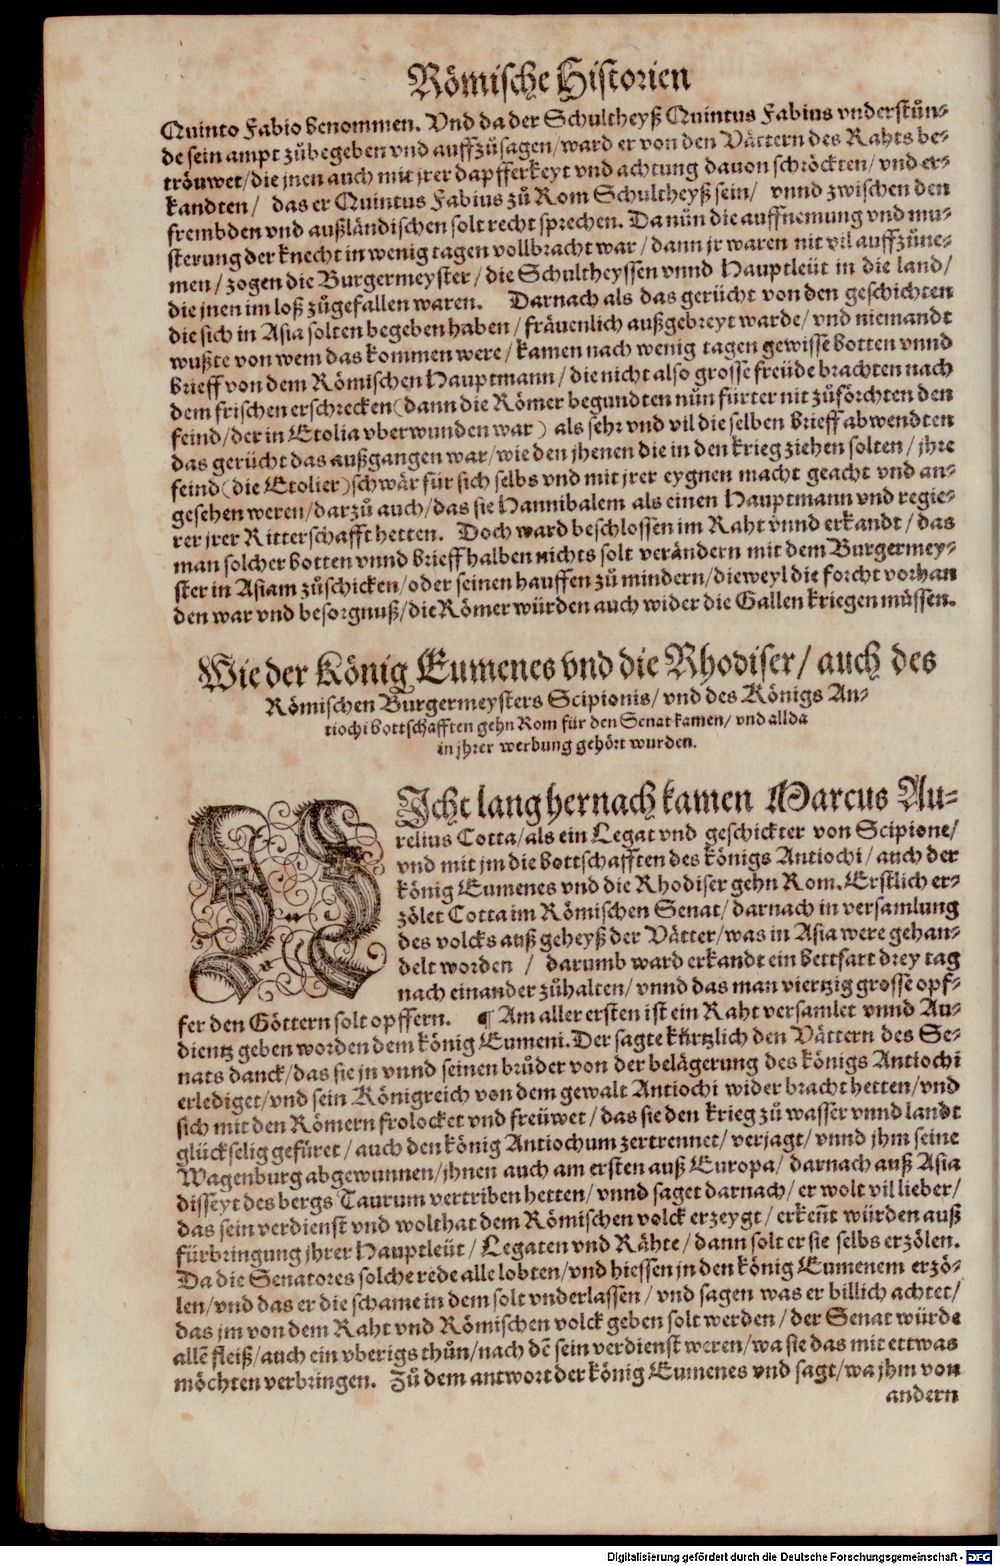 Römische Historien
Quinto Fabio benommen. Vnd da der Schultheyß Quintus Fabius vnderstůn-
de sein ampt zůbegeben vnd auffzůsagen/ ward er von den Vättern des Rahts be-
tröuwet/ die jnen auch mit jrer dapfferkeyt vnd achtung dauon schröckten/ vnd er-
kandten/ das er Quintus Fabius zů Rom Schultheyß sein/ vnnd zwischen den
frembden vnd außländischen solt recht sprechen. Da nůn die auffnemung vnd mu-
sterung der knecht in wenig tagen vollbracht war/ dann jr waren nit vil auffzůne-
men/ zogen die Burgermeyster/ die Schultheyssen vnnd Hauptleüt in die land/
die jnen im loß zůgefallen waren. Darnach als das gerücht von den geschichten
die sich in Asia solten begeben haben/ fräuenlich außgebreyt warde/ vnd niemandt
wußte von wem das kommen were/ kamen nach wenig tagen gewisse botten vnnd
brieff von dem Römischen Hauptmann/ die nicht also grosse freüde brachten nach
dem frischen erschrecken (dann die Römer begundten nůn fürter nit zůförchten den
feind/ der in Etolia vberwunden war) als sehr vnd vil die selben brieff abwendten
das gerücht das außgangen war/ wie den jhenen die in den krieg ziehen solten/ jhre
feind (die Etolier) schwär für sich selbs vnd mit jrer eygnen macht geacht vnd an-
gesehen weren/ darzů auch/ das sie Hannibalem als einen Hauptmann vnd regie-
rer jrer Ritterschafft hetten. Doch ward beschlossen im Raht vnnd erkandt/ das
man solcher botten vnnd brieff halben nichts solt verändern mit dem Burgermey-
ster in Asiam zůschicken/ oder seinen hauffen zů mindern/ dieweyl die forcht vorhan
den war vnd besorgnuß/ die Römer würden auch wider die Gallen kriegen müssen.
Wie der König Eumenes vnd die Rhodiser/ auch des
Römischen Burgermeysters Scipionis/ vnd des Königs An-
tiochi bottschafften gehn Rom für den Senat kamen/ vnd allda
in jhrer werbung gehört wurden.
NIcht lang hernach kamen Marcus Au-
relius Cotta/ als ein Legat vnd geschickter von Scipione/
vnd mit jm die bottschafften des königs Antiochi/ auch der
könig Eumenes vnd die Rhodiser gehn Rom. Erstlich er-
zölet Cotta im Römischen Senat/ darnach in versamlung
des volcks auß geheyß der Vätter/ was in Asia were gehan-
delt worden/ darumb ward erkandt ein bettfart drey tag
nach einander zůhalten/ vnnd das man viertzig grosse opf-
fer den Göttern solt opffern. ¶ Am aller ersten ist ein Raht versamlet vnnd Au-
dientz geben worden dem könig Eumeni. Der sagte kürtzlich den Vättern des Se-
nats danck/ das sie jn vnnd seinen brůder von der belägerung des königs Antiochi
erlediget/ vnd sein Königreich von dem gewalt Antiochi wider bracht hetten/ vnd
sich mit den Römern frolocket vnd freüwet/ das sie den krieg zů wasser vnnd landt
glückselig gefüret/ auch den könig Antiochum zertrennet/ verjagt/ vnnd jhm seine
Wagenburg abgewunnen/ jhnen auch am ersten auß Europa/ darnach auß Asia
disseyt des bergs Taurum vertriben hetten/ vnnd saget darnach/ er wolt vil lieber/
das sein verdienst vnd wolthat dem Römischen volck erzeygt/ erkeñt würden auß
fürbringung jhrer Hauptleüt/ Legaten vnd Rähte/ dann solt er sie selbs erzölen.
Da die Senatores solche rede alle lobten/ vnd hiessen jn den könig Eumenem erzö-
len/ vnd das er die schame in dem solt vnderlassen/ vnd sagen was er billich achtet/
das jm von dem Raht vnd Römischen volck geben solt werden/ der Senat würde
allẽ fleiß/ auch ein vberigs thůn/ nach dẽ sein verdienst weren/ wa sie das mit ettwas
möchten verbringen. Zů dem antwort der könig Eumenes vnd sagt/ wa jhm von
andern
Digitalisierung gefördert durch die Deutsche Forschungsgemeinschaft - DFG